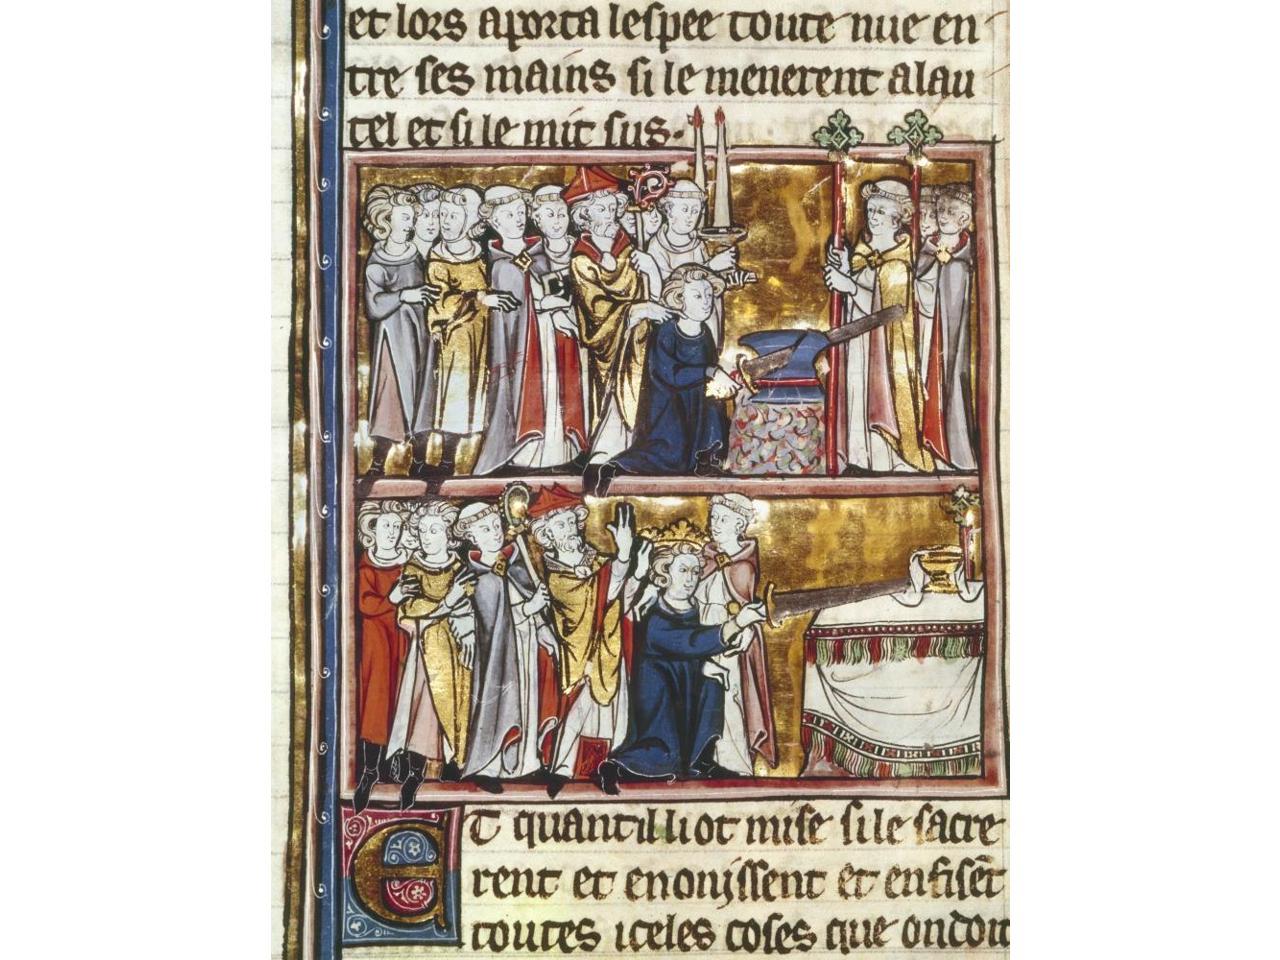 et lors aporta lespee toute nue en
tre ses mains si le menerent alau
tel et si le mit sus.
ET quant il li ot mise si le sacre
rent et enonissent et enfisẽt
toutes iceles coses que ondoit